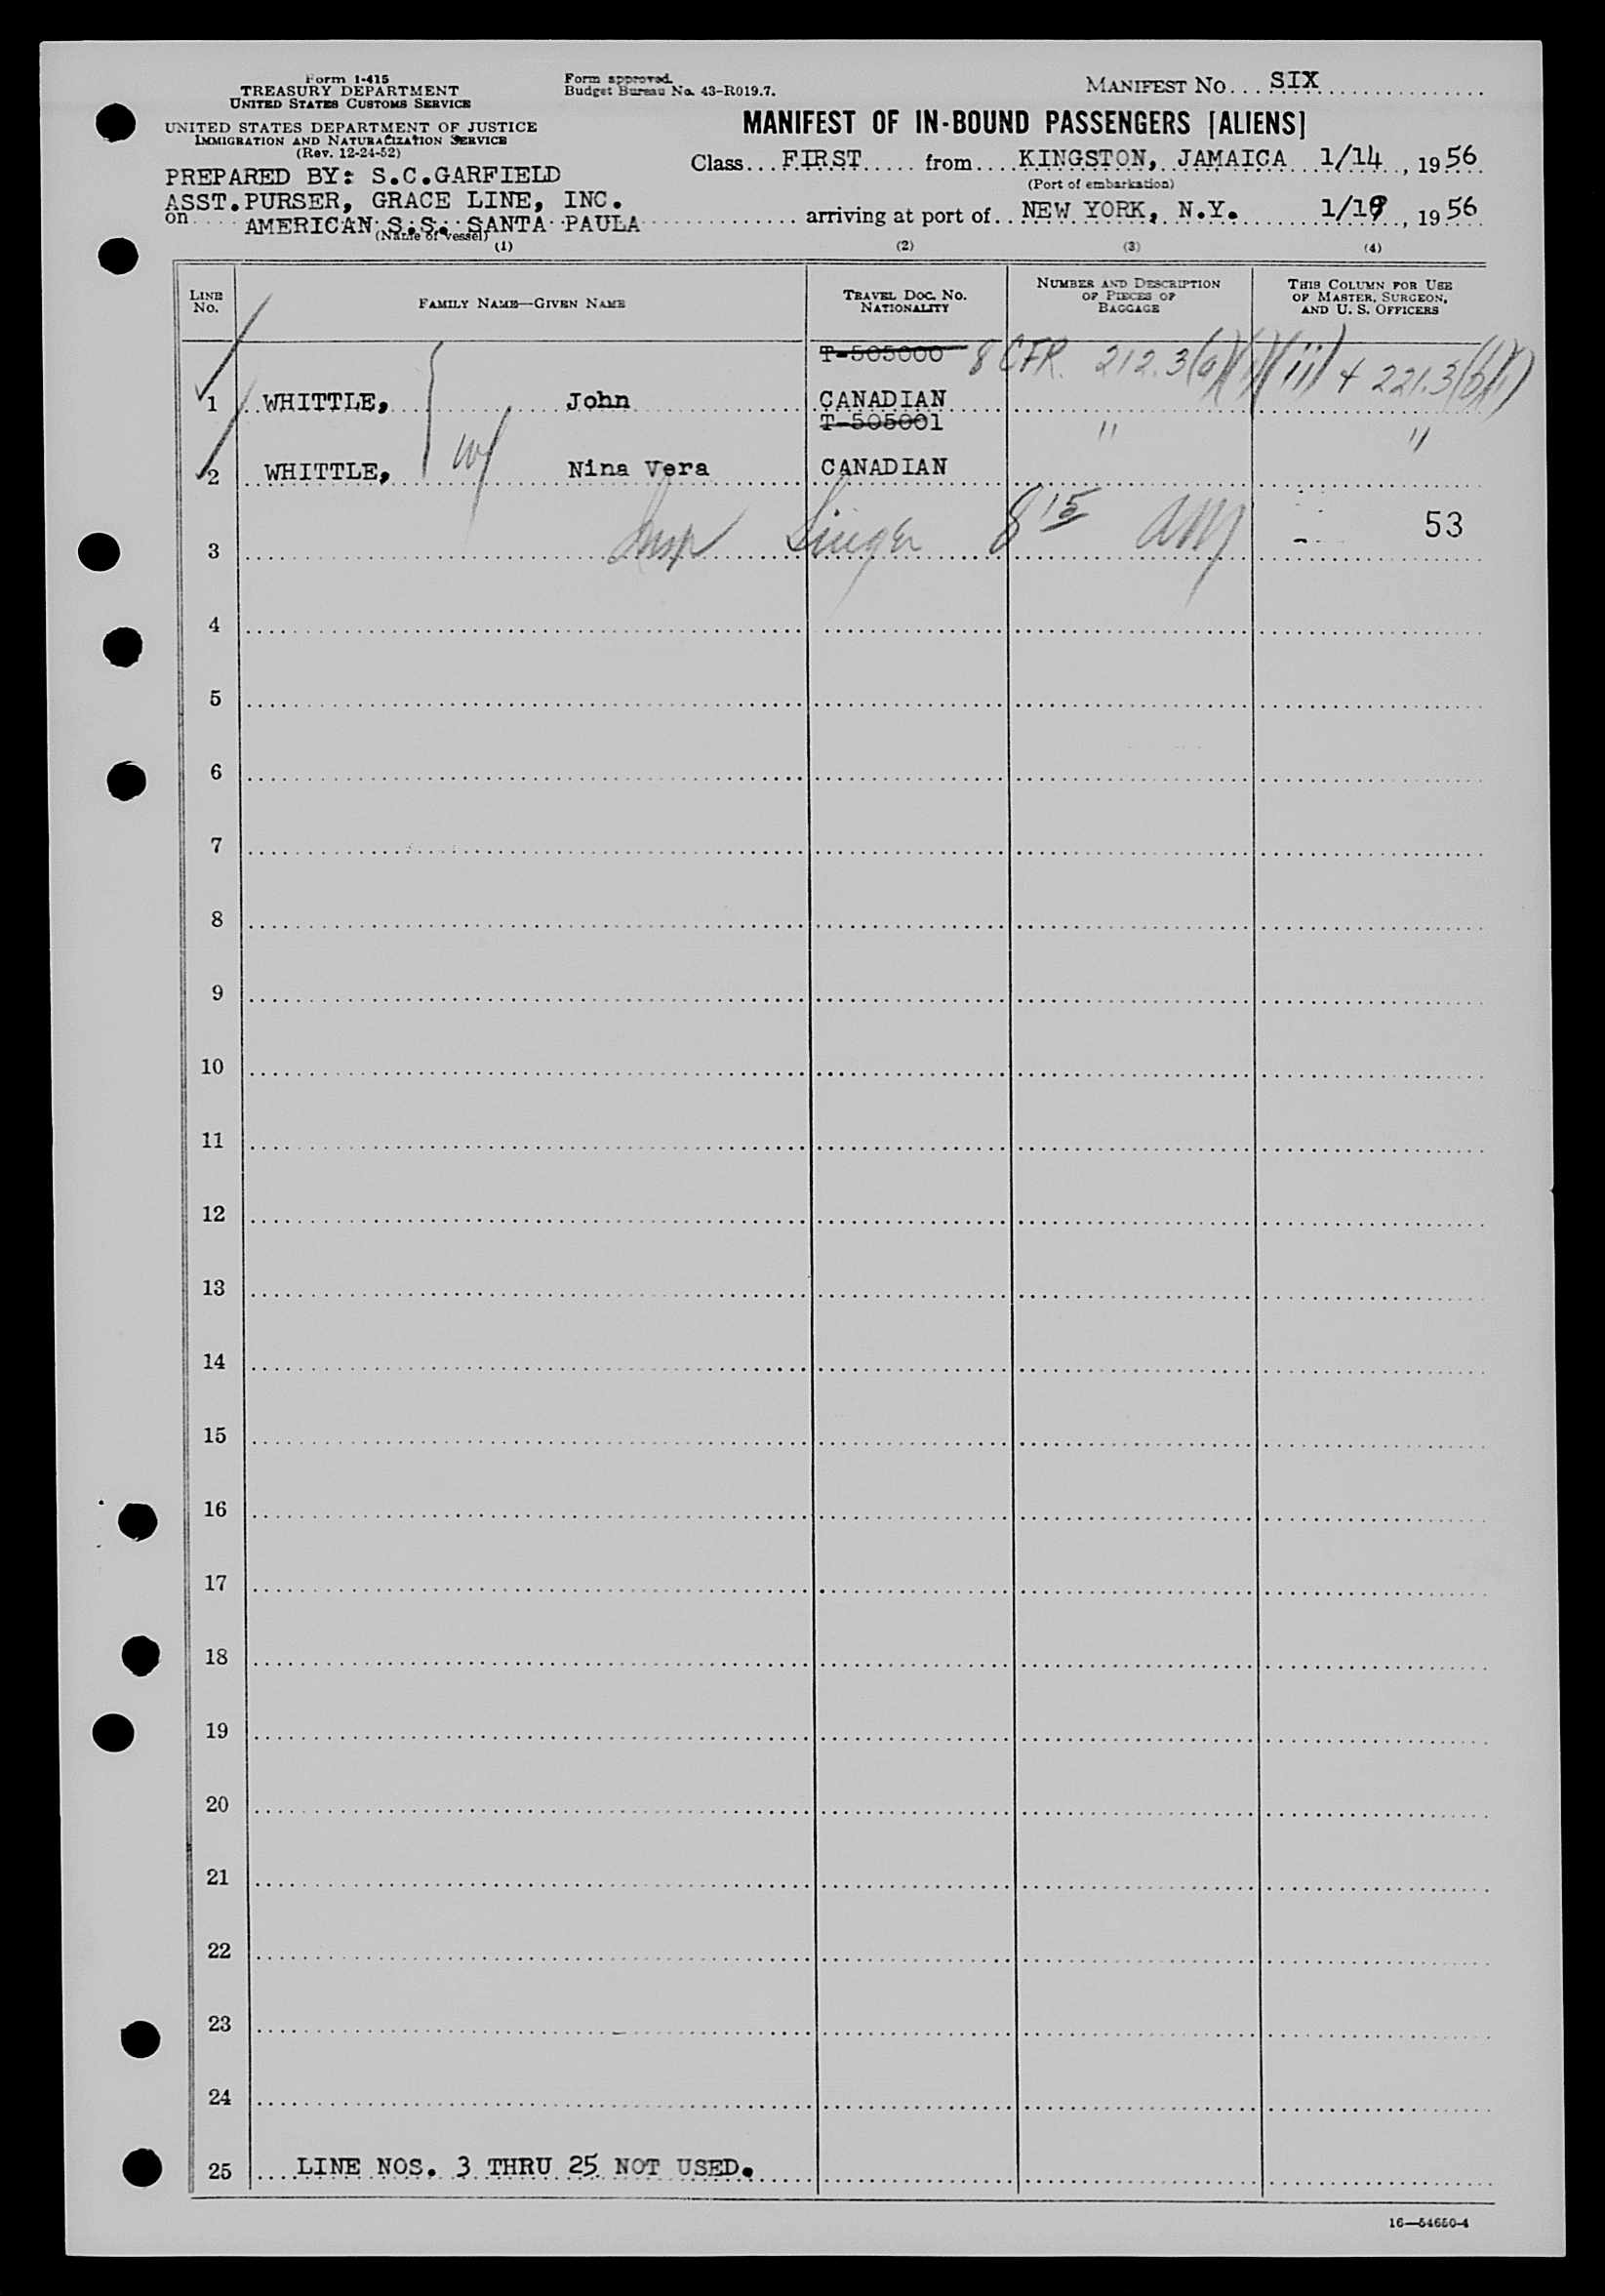 Form I-415
TREASURY DEPARTMENT
UNITED STATES CUSTOMS SERVICE
UNITED STATES DEPARTMENT OF JUSTICE
IMMIGRATION AND NATURALIZATION SERVICE
(Rev. 12-24-52)
Form approved.
Budget Bureau No. 43-R019.7.
MANIFEST NO. SIX
MANIFEST OF IN-BOUND PASSENGERS [ALIENS]
Class FIRST from KINGSTON, JAMAICA 1/14, 1956
(Port of embarkation)
PREPARED BY: S.C.GARFIELD
ASST.PURSER, GRACE LINE, INC.
on AMERICAN S.S. SANTA PAULA arriving at port of NEW YORK, N.Y. 1/19, 1956
(Name of vessel)
(1) (2) (3) (4)
LINE NO. FAMILY NAME—GIVEN NAME TRAVEL DOC. NO. NATIONALITY NUMBER AND DESCRIPTION OF PIECES OF BAGGAGE THIS COLUMN FOR USE OF MASTER, SURGEON, AND U. S. OFFICERS
T-505000 8 CFR. 212.3(a)(1)(iii) + 221.3(b)(1)
1 WHITTLE, John CANADIAN
T-505001 " "
2 WHITTLE, w/ Nina Vera CANADIAN
3 Insp Singer 8 15 AM 53
4
5
6
7
8
9
10
11
12
13
14
15
16
17
18
19
20
21
22
23
24
25 LINE NOS. 3 THRU 25 NOT USED.
16—54650-4